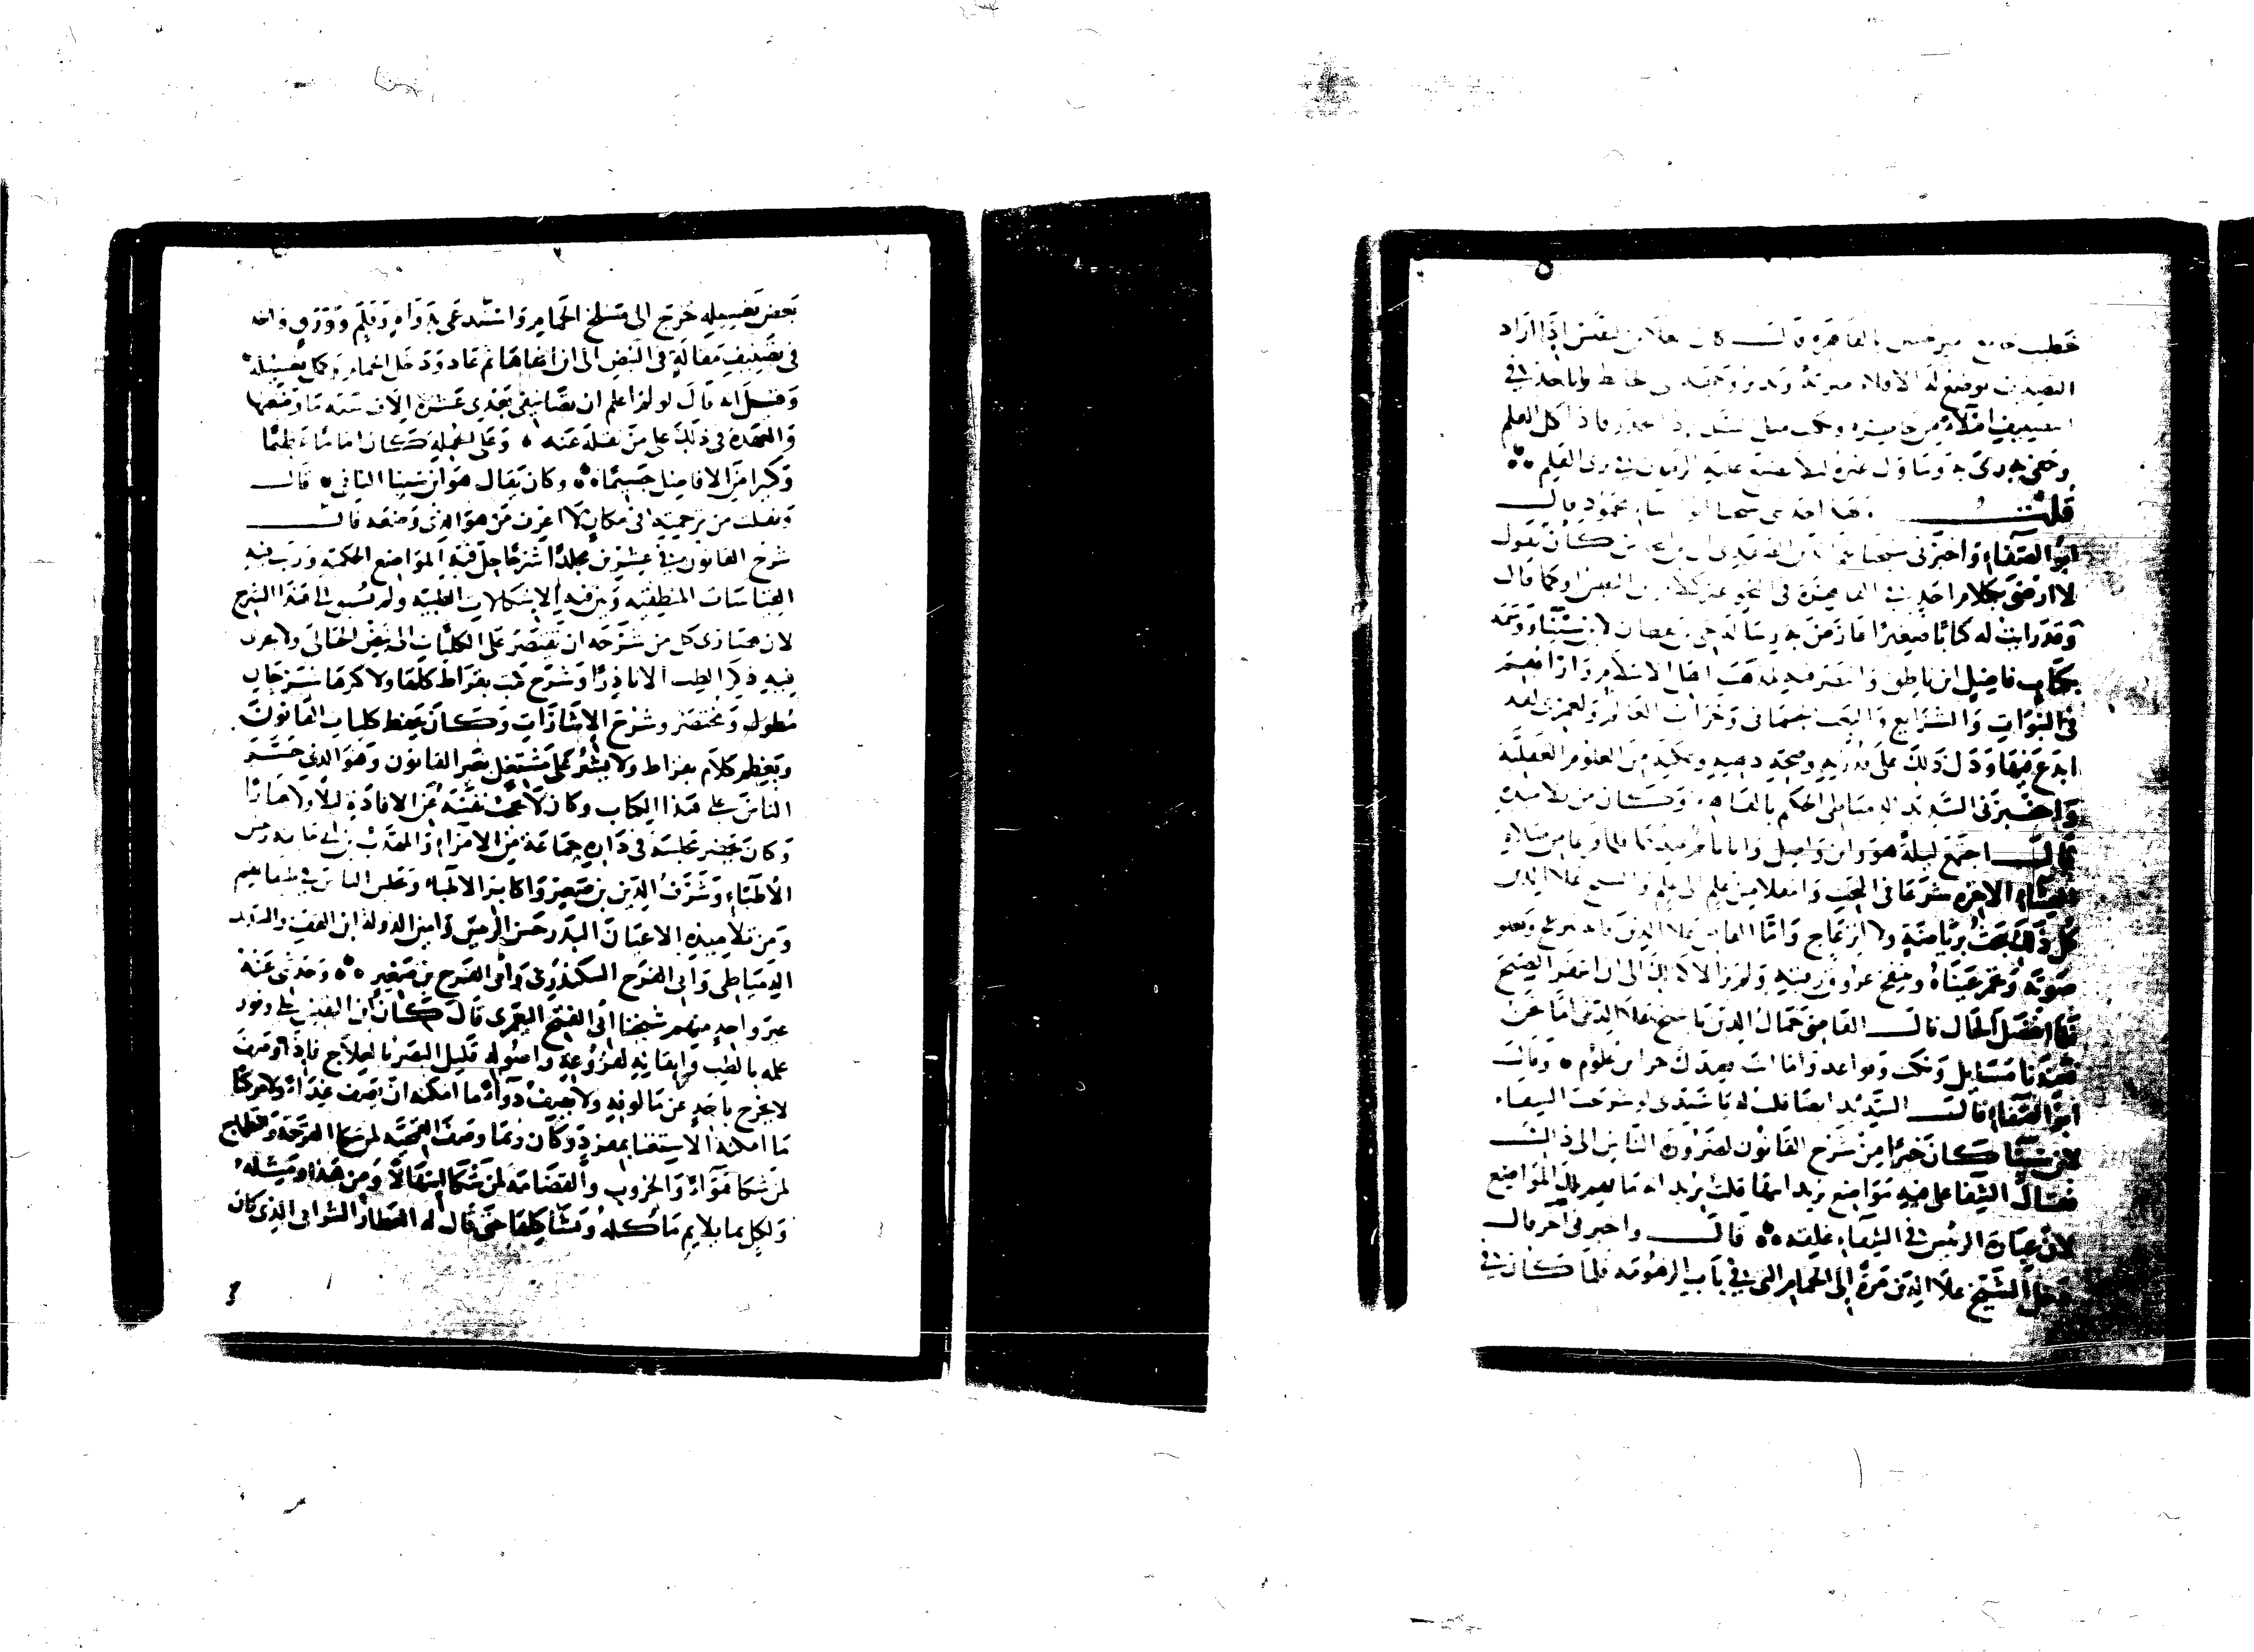 خطيب جامع بالقاهرة قال كان العلاء بن النفيس إذا اراد
التصنيف توضع له الاقلام مبرية ويدير وجهه الى الحائط وياخذ في
التصنيف املاء من خاطره ويكتب مثل السيل اذا انحدر فاذا كل القلم
وحفي رمى به وتناول غيره لئلا يضيع عليه الزمان في بري القلم
قلت محمود قال
ابو الصفاء واخبرني شيخنا كان يقول
لا ارضى بكلام احد في القاهرة في النحو غير كلام ابن النفيس او كما قال
وقد رايت له كتابا صغيرا عارض به رسالة حي بن يقظان لابن سينا ووسمه
بكتاب فاضل ابن ناطق وانتصر فيه لمذهب اهل الاسلام وارائهم
في النبوات والشرايع والبعث الجسماني وخراب العالم ولعمري لقد
ابدع فيها ودل ذلك على قدرته وصحة ذهنه وتمكنه من العلوم العقلية
واخبرني السديد الدمياطي الحكيم بالقاهرة وكان من تلاميذه
قال اجتمع ليلة هو وابن واصل وانا نائم عندهما فلما فرغا من صلاة
العشاء الاخرة شرعا في البحث وانتقلا من علم الى علم والشيخ علاء الدين
كل ذلك يبحث برياضة ولا انزعاج واما القاضي جمال الدين فانه ينزعج ويعلو
صوته وتحمر عيناه وتنتفخ عروق رقبته ولم يزالا كذلك الى ان اسفر الصبح
فلما انفصل الحال قال القاضي جمال الدين يا شيخ علاء الدين اما نحن
فعندنا مسايل ونكت وقواعد واما انت فعندك خزاين علوم وقال
ابو الصفاء قال السديد ايضا قلت له يا سيدي لو شرحت الشفاء
لابن سينا كان خيرا من شرح القانون لضرورة الناس الى ذلك
فقال الشفا علي فيه مواضع تريد ايضا قلت يريد انه ما فهم تلك المواضع
لان عبارة الرئيس في الشفاء غلقة قال واخبرني آخر قال
دخل الشيخ علاء الدين مرة الى الحمام التي في باب الزهومة فلما كان في
بعض تغسيله خرج الى مسلخ الحمام واستدعى بدواة وقلم وورق واخذ
في تصنيف مقالة في النبض الى ان انهاها ثم عاد ودخل الحمام وكمل تغسيله
وقيل انه قال لو لم اعلم ان تصانيفي تبقى بعدي عشرة الاف سنة ما وضعتها
والعهدة في ذلك على من نقله عنه وعلى الجملة كان اماما عظيما
وكبيرا من الافاضل جسيما وكان يقال هو ابن سينا الثاني قال
ونقلت من ترجمته في مكان لا اعرف من هو الذي وضعه قال
شرح القانون في عشرين مجلدا شرحا حل فيه المواضع الحكمية ورتب فيه
القياسات المنطقية وبين فيه الاشكالات الطبية ولم يسبق الى هذا الشرح
لان قصارى كل من شرحه ان يقتصر على الكليات الى نبض الحبالى ولا يجري
فيه ذكر الطب الا نادرا وشرح كتب بقراط كلها ولاكثرها شرحان
مطول ومختصر وشرح الاشارات وكان يحفظ كليات القانون
ويعظم كلام بقراط ولا يشير على مشتغل بغير القانون وهو الذي جسر
الناس على هذا الكتاب وكان لا يحجب نفسه عن الافادة ليلا ولا نهارا
وكان يحضر مجلسه في داره جماعة من الامراء والمهذب بن ابي حليقة رئيس
الاطباء وشرف الدين بن صغير واكابر الاطباء ويجلس الناس في طبقاتهم
ومن تلاميذه الاعيان البدر حسن الرئيس وامين الدولة ابن القف والسديد
الدمياطي وابي الفرح السكندري وابي الفرج بن صغير وحدثني عنه
غير واحد منهم شيخنا ابي الفتح اليعمري قال كان ابن النفيس على وفور
علمه بالطب واتقانه لفروعه واصوله قليل البصر بالعلاج فاذا وصف
لا يخرج باحد عن مالوفه ولا يصف دواء ما امكنه ان يصف غذاء ولا مركبا
ما امكنه الاستغنا بمفرد وكان ربما وصف القمحية لمن شكا القرحة والتطماج
لمن شكا هواء والخروب والقضامة لمن شكا اسهالا ومن هذا ومثله
ولكل بما يلايم ماكله ويشاكلها حتى قال له العطار الشرابي الذي كان